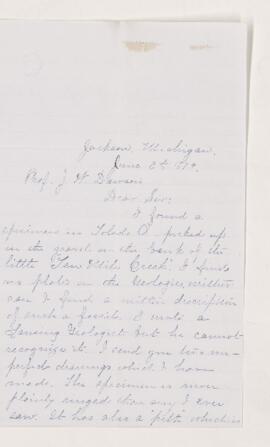 Jackson, Michigan.
June 8th
Prof. J. W. Dawson
Dear Sir:
I found a
specimen in Toledo O. picked up
in the gravel on the bank of the
little "Ten Mile Creek". I find
no photo in the Geologies, neither
can I find a written description
of such a fossil. I wrote a
Lansing Geologist but he cannot
recognize it. I send you two im-
perfect drawings which I have
made. The specimen is more
plainly ringed than any I ever
saw. It has also a "pith" which is